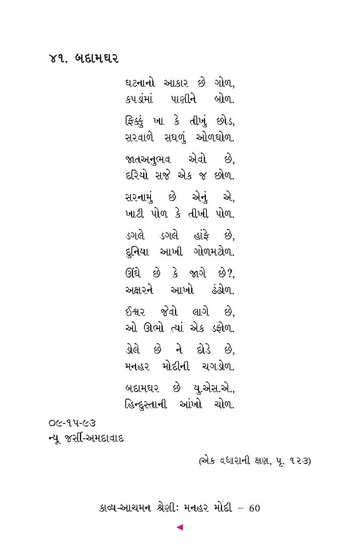 ૪૧. બદામઘર
ઘટનાનો આકાર છે ગોળ,
કપડાંમાં પાણીને બોળ.
ફિક્કું ખા કે તીખું છોડ,
સરવાળે સઘળું ઓળઘોળ.
જાતઅનુભવ એવો છે,
દરિયો સજે એક જ છોળ.
સરનામું છે એનું એ,
ખાટી પોળ કે તીખી પોળ.
ડગલે ડગલે હાંફે છે,
દુનિયા આખી ગોળમટોળ.
ઊંઘે છે કે જાગે છે?,
અક્ષરને આખો ઢંઢોળ.
ઈશ્વર જેવો લાગે છે,
ઓ ઊભો ત્યાં એક ડફોળ.
ડોલે છે ને દોડે છે,
મનહર મોદીની ચગડોળ.
બદામઘર છે યુ.એસ.એ.,
હિન્દુસ્તાની આંખો ચોળ.
૦૯-૧૫-૯૩
ન્યૂ જર્સી-અમદાવાદ
(એક વધારાની ક્ષણ, પૃ. ૧૨૩)
કાવ્ય-આચમન શ્રેણીઃ મનહર મોદી – 60